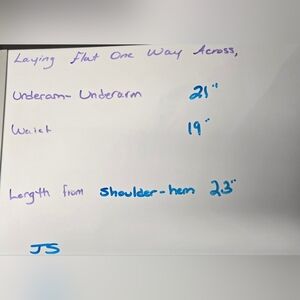 Laying flat One Way Across,
Underarm- Underarm 21"
Waist 19"
Length from Shoulder-hem 23"
JS